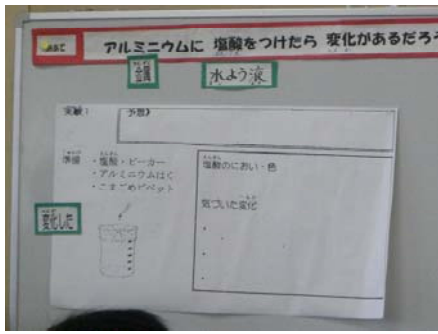 めあて
アルミニウムに 塩酸をつけたら 変化があるだろう
金属
水よう液
実験1
予想
準備 ・塩酸・ビーカー
・アルミニウムはく
・こまごめピペット
変化した
塩酸のにおい・色
気づいた変化